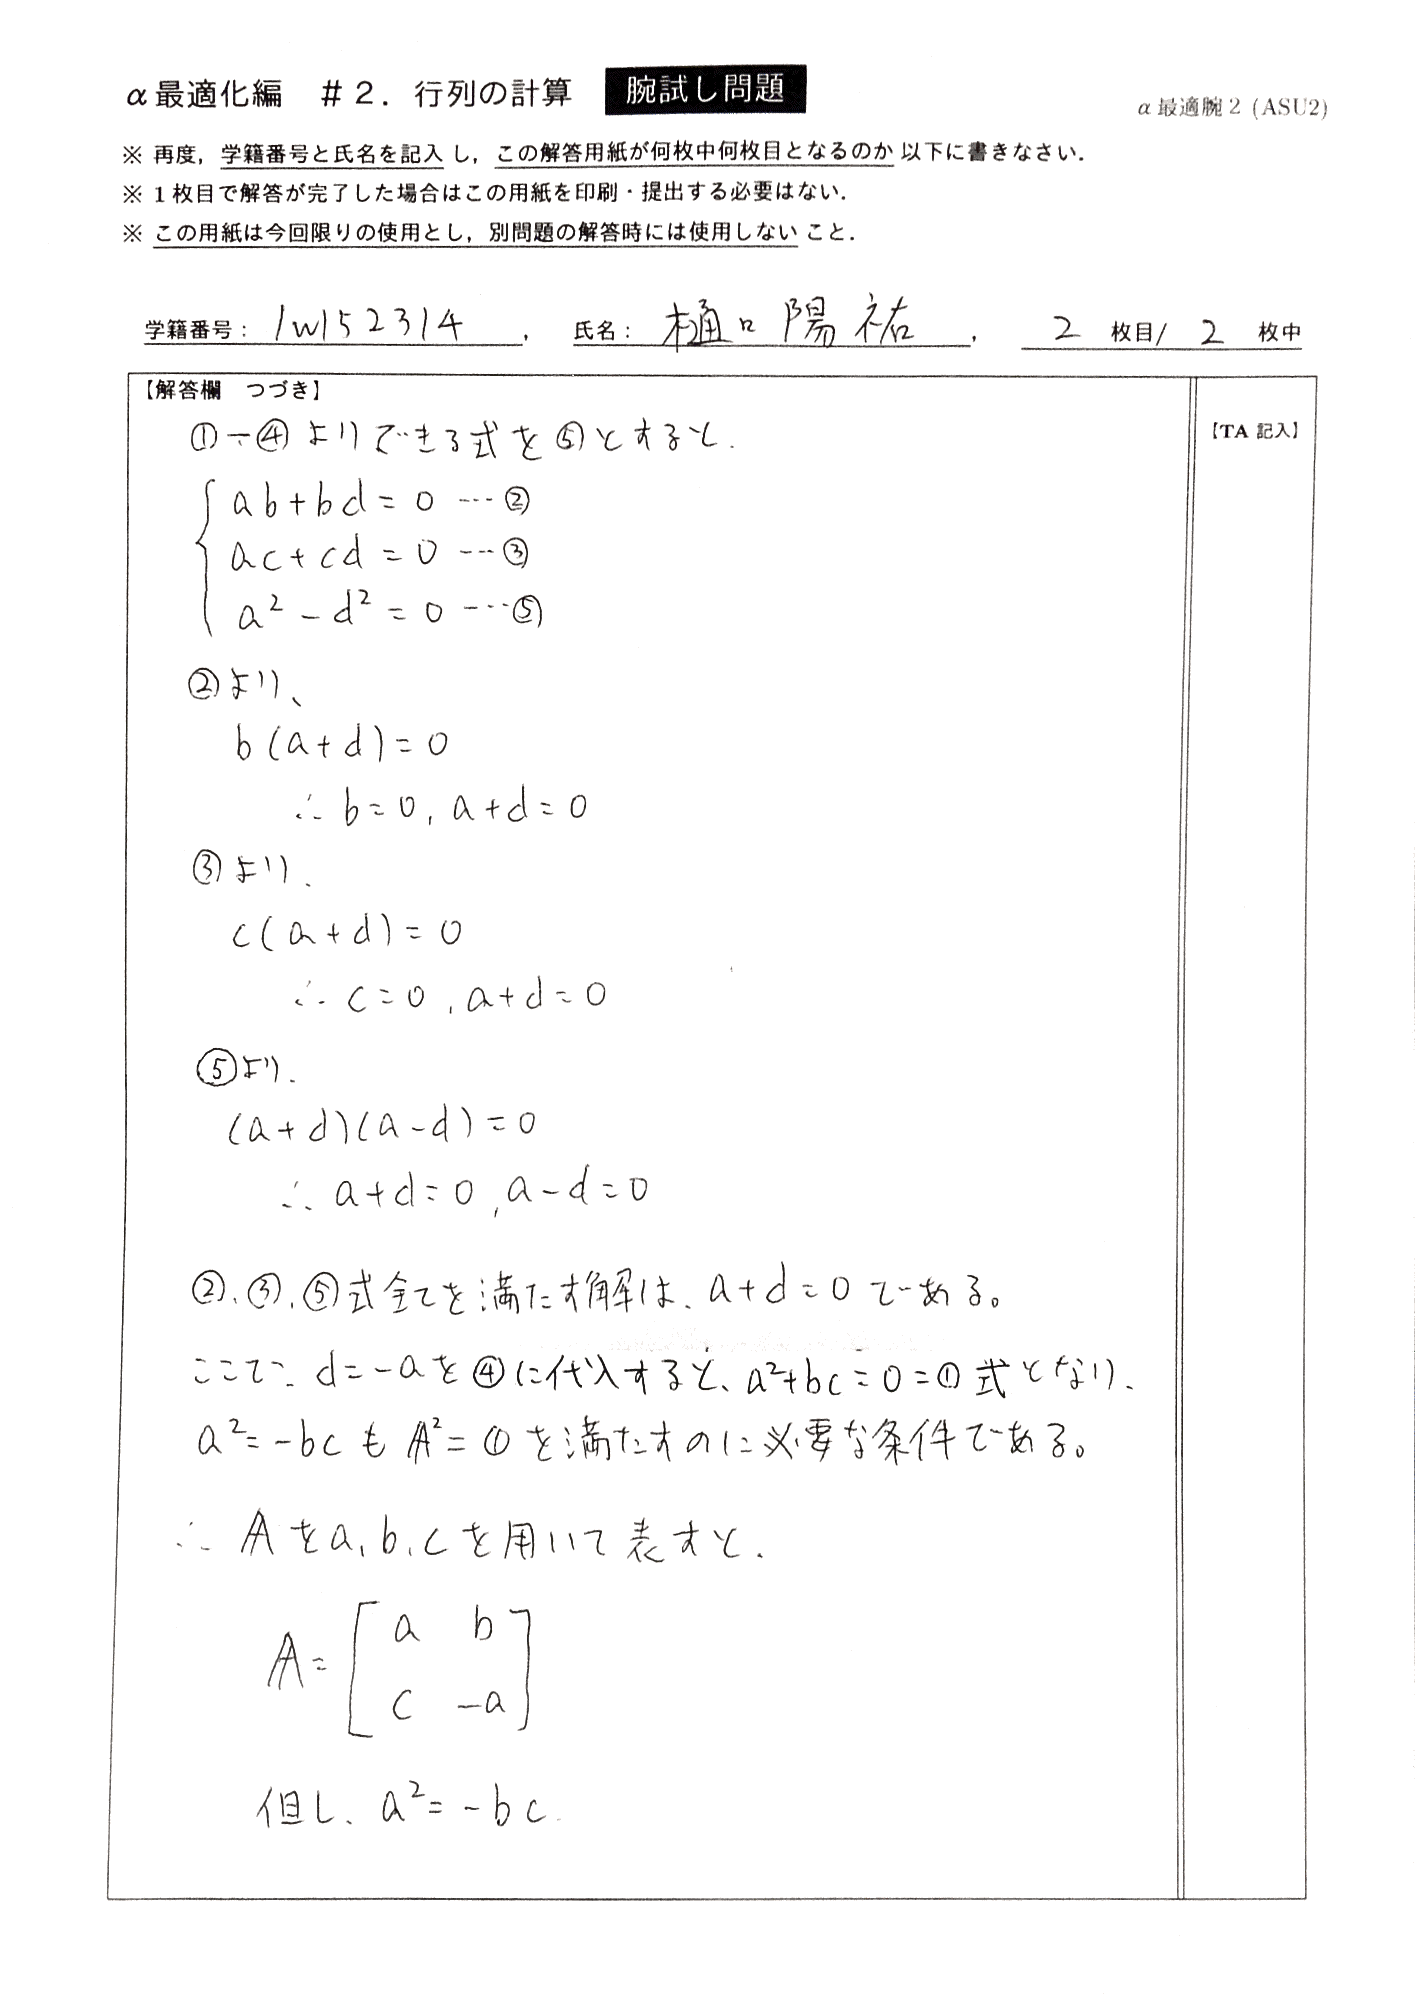 α最適化編　＃２．行列の計算　腕試し問題
α最適腕２(ASU2)
※ 再度，学籍番号と氏名を記入し，この解答用紙が何枚中何枚目となるのか以下に書きなさい．
※ １枚目で解答が完了した場合はこの用紙を印刷・提出する必要はない．
※ この用紙は今回限りの使用とし，別問題の解答時には使用しないこと．
学籍番号： 1W152314 ， 氏名： 樋口陽祐 ， 2 枚目/ 2 枚中
【解答欄　つづき】
【TA 記入】
①-④よりできる式を⑤とすると.
ab+bd=0 …②
ac+cd=0 …③
a²-d²=0 …⑤
②より、
b(a+d)=0
∴ b=0, a+d=0
③より、
c(a+d)=0
∴ c=0, a+d=0
⑤より.
(a+d)(a-d)=0
∴ a+d=0, a-d=0
②、③、⑤式全てを満たす解は、a+d=0である。
ここで、d=-aを④に代入すると、a²+bc=0=①式となり、
a²=-bcもA²=Oを満たすのに必要な条件である。
∴ Aをa,b,cを用いて表すと.
A=[ a b
c -a ]
但し、a²=-bc.